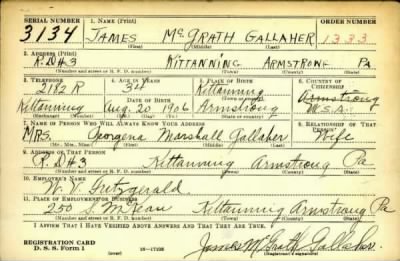 SERIAL NUMBER 1. NAME (Print) ORDER NUMBER
3134 JAMES McGRATH GALLAHER 1333
(First) (Middle) (Last)
2. ADDRESS (Print)
R.D#3 KITTANNING ARMSTRONG PA
(Number and street or R. F. D. number) (Town) (County) (State)
3. TELEPHONE 4. AGE IN YEARS 5. PLACE OF BIRTH 6. COUNTRY OF CITIZENSHIP
2182 R 34 Kittanning Armstrong
Kittanning DATE OF BIRTH (Town or county)
Aug. 20 1906 Armstrong U.S.A.
(Exchange) (Number) (Mo.) (Day) (Yr.) (State or country)
7. NAME OF PERSON WHO WILL ALWAYS KNOW YOUR ADDRESS 8. RELATIONSHIP OF THAT PERSON
MRS. Georgena Marshall Gallaher Wife
(Mr., Mrs., Miss) (First) (Middle) (Last)
9. ADDRESS OF THAT PERSON
R.D#3 Kittanning Armstrong Pa
(Number and street or R. F. D. number) (Town) (County) (State)
10. EMPLOYER'S NAME
W. V. Fitzgerald
11. PLACE OF EMPLOYMENT OR BUSINESS
250 S. McKean Kittanning Armstrong Pa
(Number and street or R. F. D. number) (Town) (County) (State)
I AFFIRM THAT I HAVE VERIFIED ABOVE ANSWERS AND THAT THEY ARE TRUE.
REGISTRATION CARD
D. S. S. Form 1 16—17105 James McGrath Gallaher
(Registrant's signature)